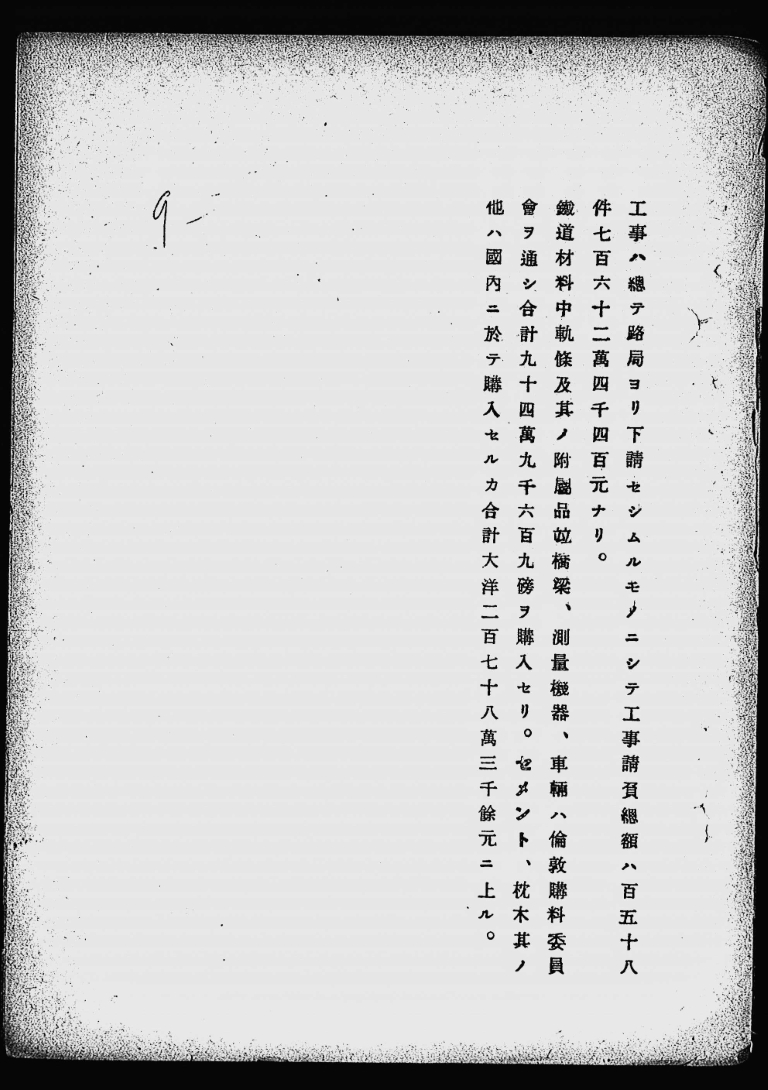 工事ハ總テ路局ヨリ下請セシムルモノニシテ工事請負總額ハ百五十八
件七百六十二萬四千四百元ナリ。
鐵道材料中軌條及其ノ附屬品竝橋梁、測量機器、車輛ハ倫敦購料委員
會ヲ通シ合計九十四萬九千六百九磅ヲ購入セリ。セメント、枕木其ノ
他ハ國內ニ於テ購入セルカ合計大洋二百七十八萬三千餘元ニ上ル。
9-